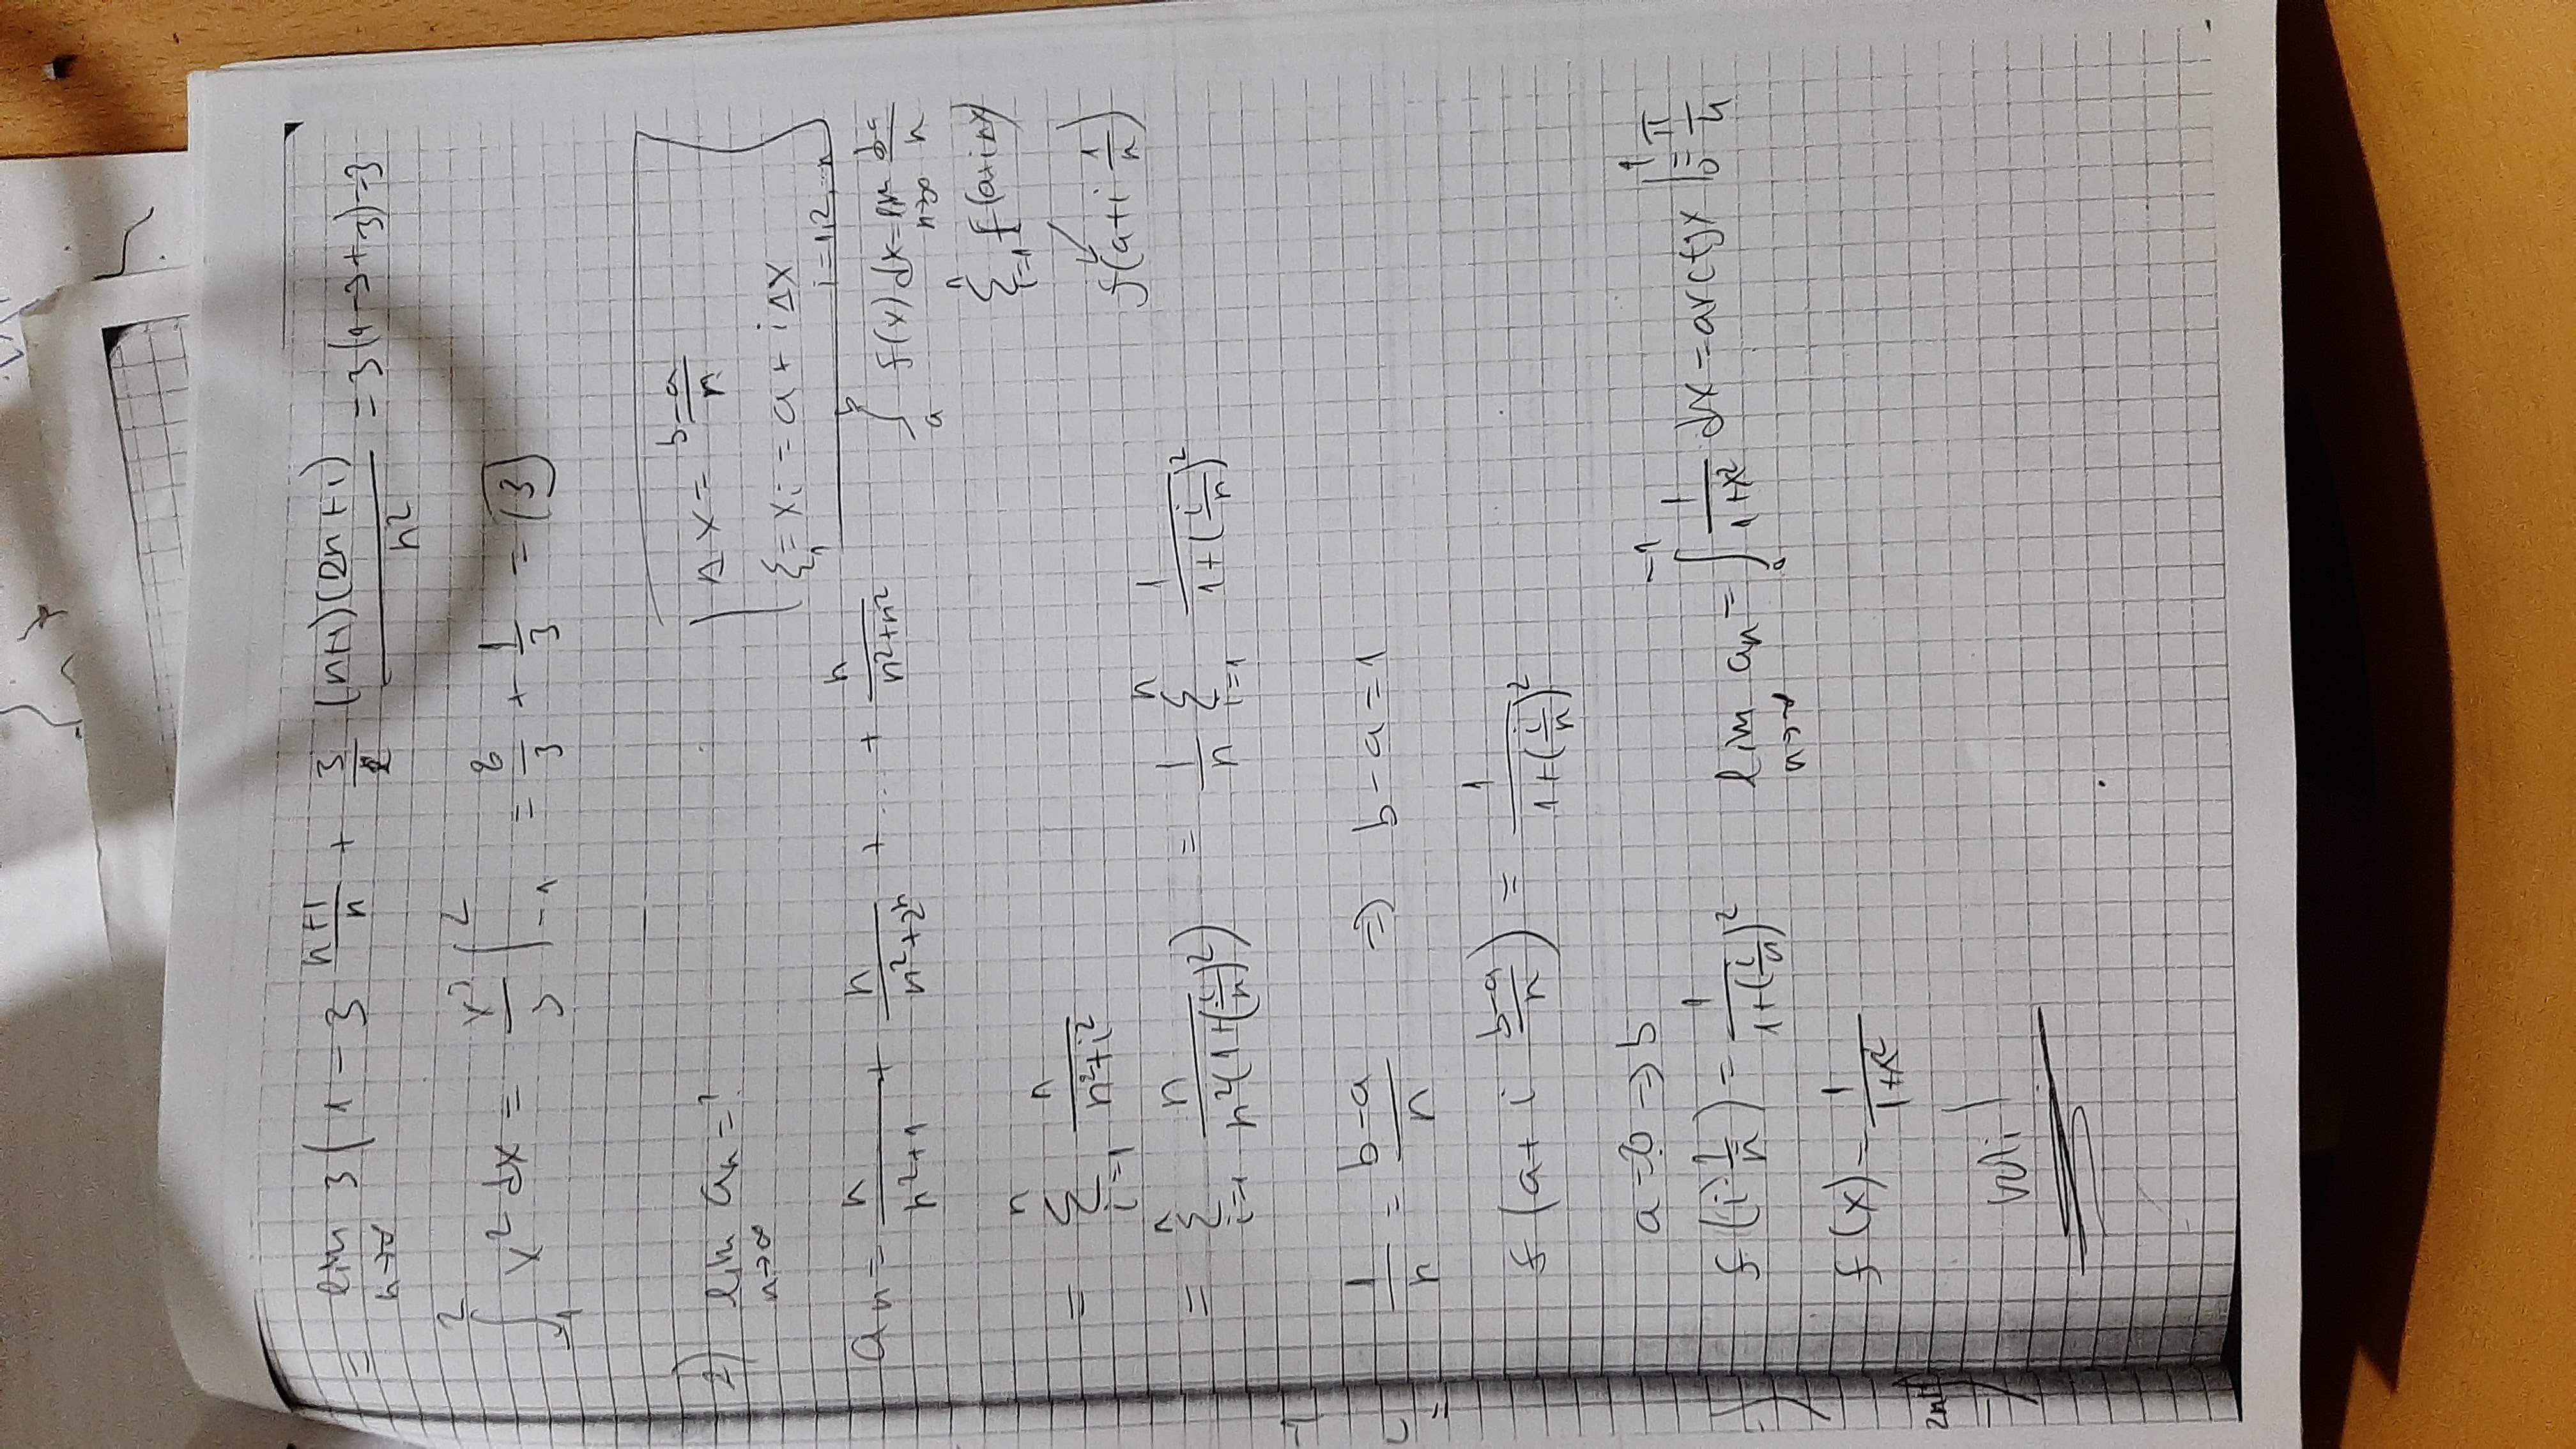 = lim n→∞ 3(1 - 3 n+1/n + 3/2 (n+1)(2n+1)/n² = 3(1-3+3)=3
∫₋₁² x² dx = x³/3 |₋₁² = 8/3 + 1/3 = (3)
2) lim n→∞ aₙ = ?
Δx = b-a/n
ξᵢ = xᵢ = a + iΔx
i = 1,2,...n
aₙ = n/n²+1 + n/n²+2ⁿ + ... + n/n²+n²
∫ₐᵇ f(x) dx = lim n→∞ b-a/n
Σᵢ₌₁ⁿ f(a+iΔx)
= Σᵢ₌₁ⁿ n/n²+i²
f(a+i 1/n)
= Σᵢ₌₁ⁿ n/n²(1+(i/n)²) = 1/n Σᵢ₌₁ⁿ 1/1+(i/n)²
1/n = b-a/n ⇒ b-a=1
f(a+i b-a/n) = 1/1+(i/n)²
a=0 ⇒ b
f(i·1/n) = 1/1+(i/n)²
lim n→∞ aₙ = ∫₀⁻¹ 1/1+x² dx = arctgx |₀¹ = π/4
f(x) = 1/1+x²
2n+1